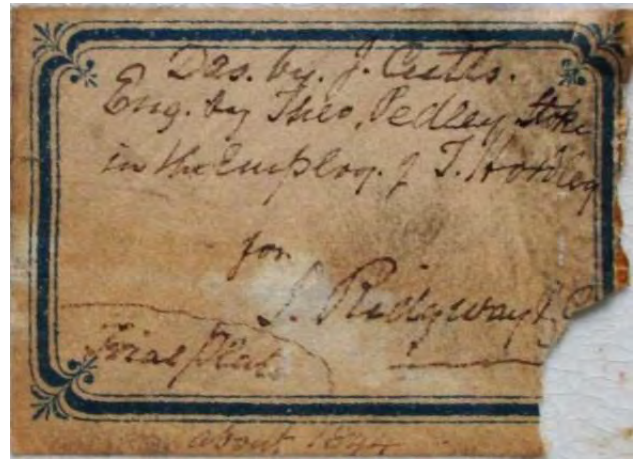 Des. by. J. Cutts.
Eng. by Theo, Pedley Stoke
in the Employ. of T. Hordley
for
J. Ridgway & C
Trial Plat
about 1844